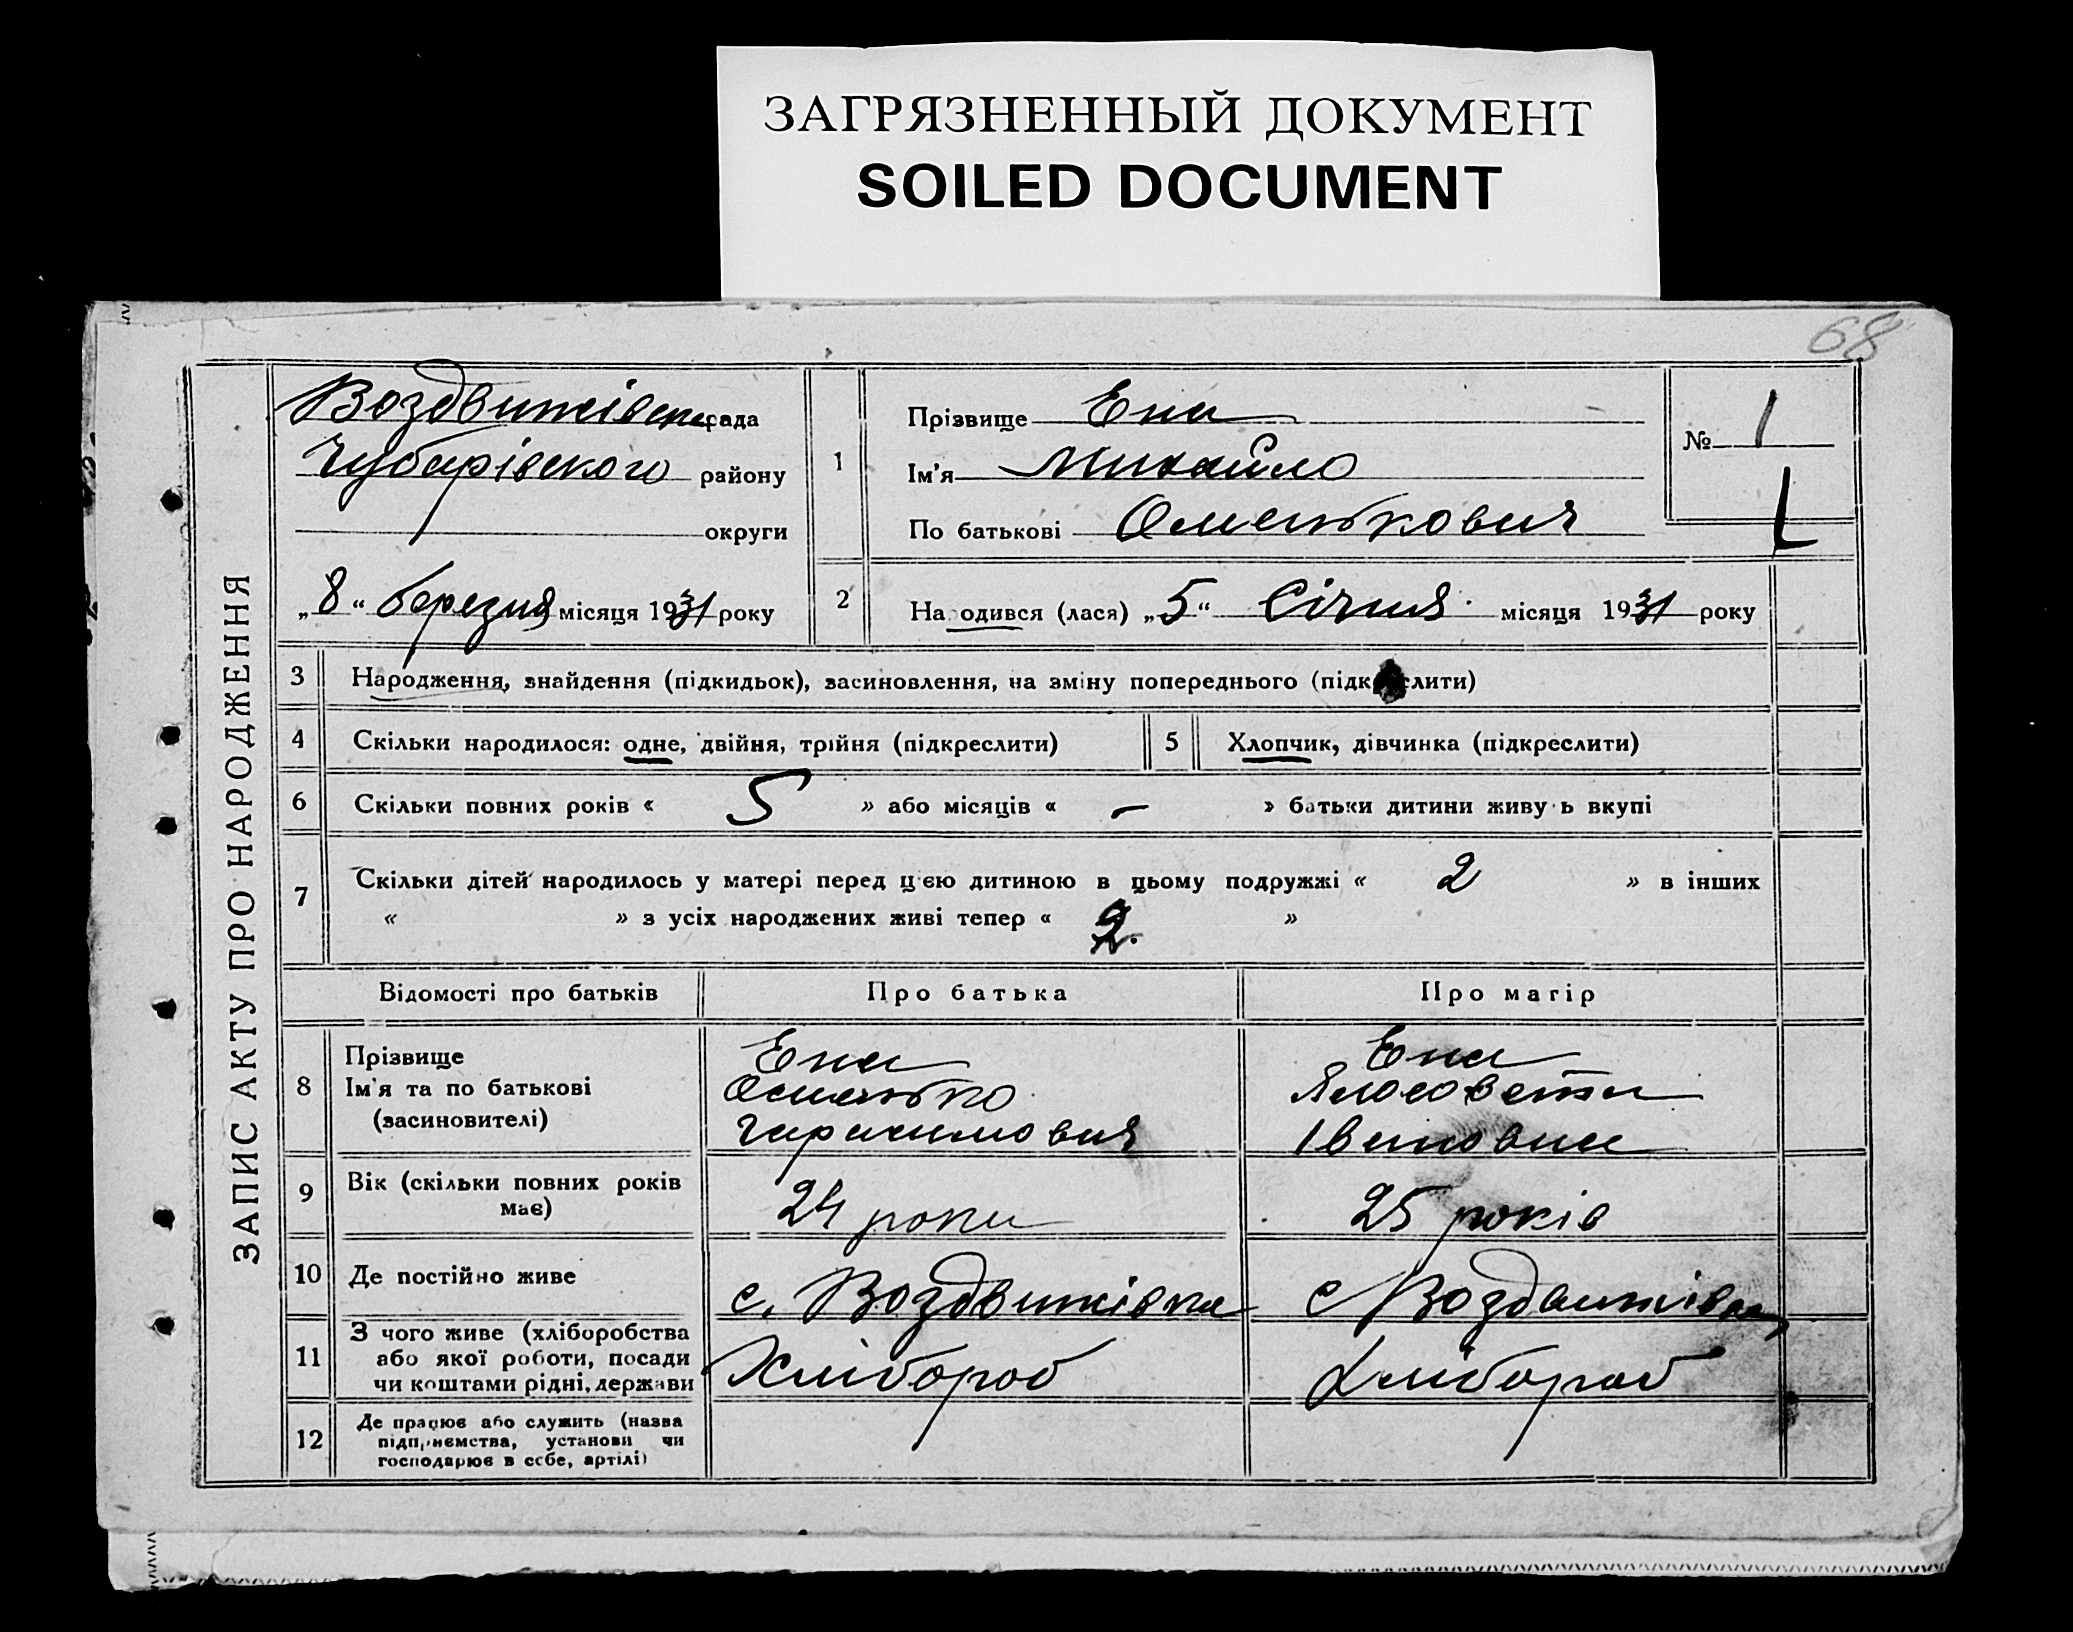 ЗАГРЯЗНЕННЫЙ ДОКУМЕНТ
SOILED DOCUMENT
68
ЗАПИС АКТУ ПРО НАРОДЖЕННЯ
Воздвижівська рада
Чубарівського району
округи
„8“ березня місяця 1931 року
1
Прізвище Ена
Ім'я Михайло
По батькові Омелькович
№ 1
2
На одився (лася) „5“ Січня місяця 1931 року
3 Народження, знайдення (підкидьок), засиновлення, на зміну попереднього (підкреслити)
4 Скільки народилося: одне, двійня, трійня (підкреслити)
5 Хлопчик, дівчинка (підкреслити)
6 Скільки повних років « 5 » або місяців « – » батьки дитини живу ь вкупі
7 Скільки дітей народилось у матері перед цією дитиною в цьому подружжі « 2 » в інших
« » з усіх народжених живі тепер « 2. »
Відомості про батьків
Про батька
Про матір
8 Прізвище
Ім'я та по батькові
(засиновителі)
Ена
Омелько
Гарасимович
Ена
Ялосовета
Івановна
9 Вік (скільки повних років
має)
24 роки
25 років
10 Де постійно живе
с. Воздвижівка
с Воздвижівка
11 З чого живе (хліборобства
або якої роботи, посади
чи коштами рідні, держави
Хлібороб
Хлібороб
12 Де працює або служить (назва
підприємства, установи чи
господарює в себе, артілі)